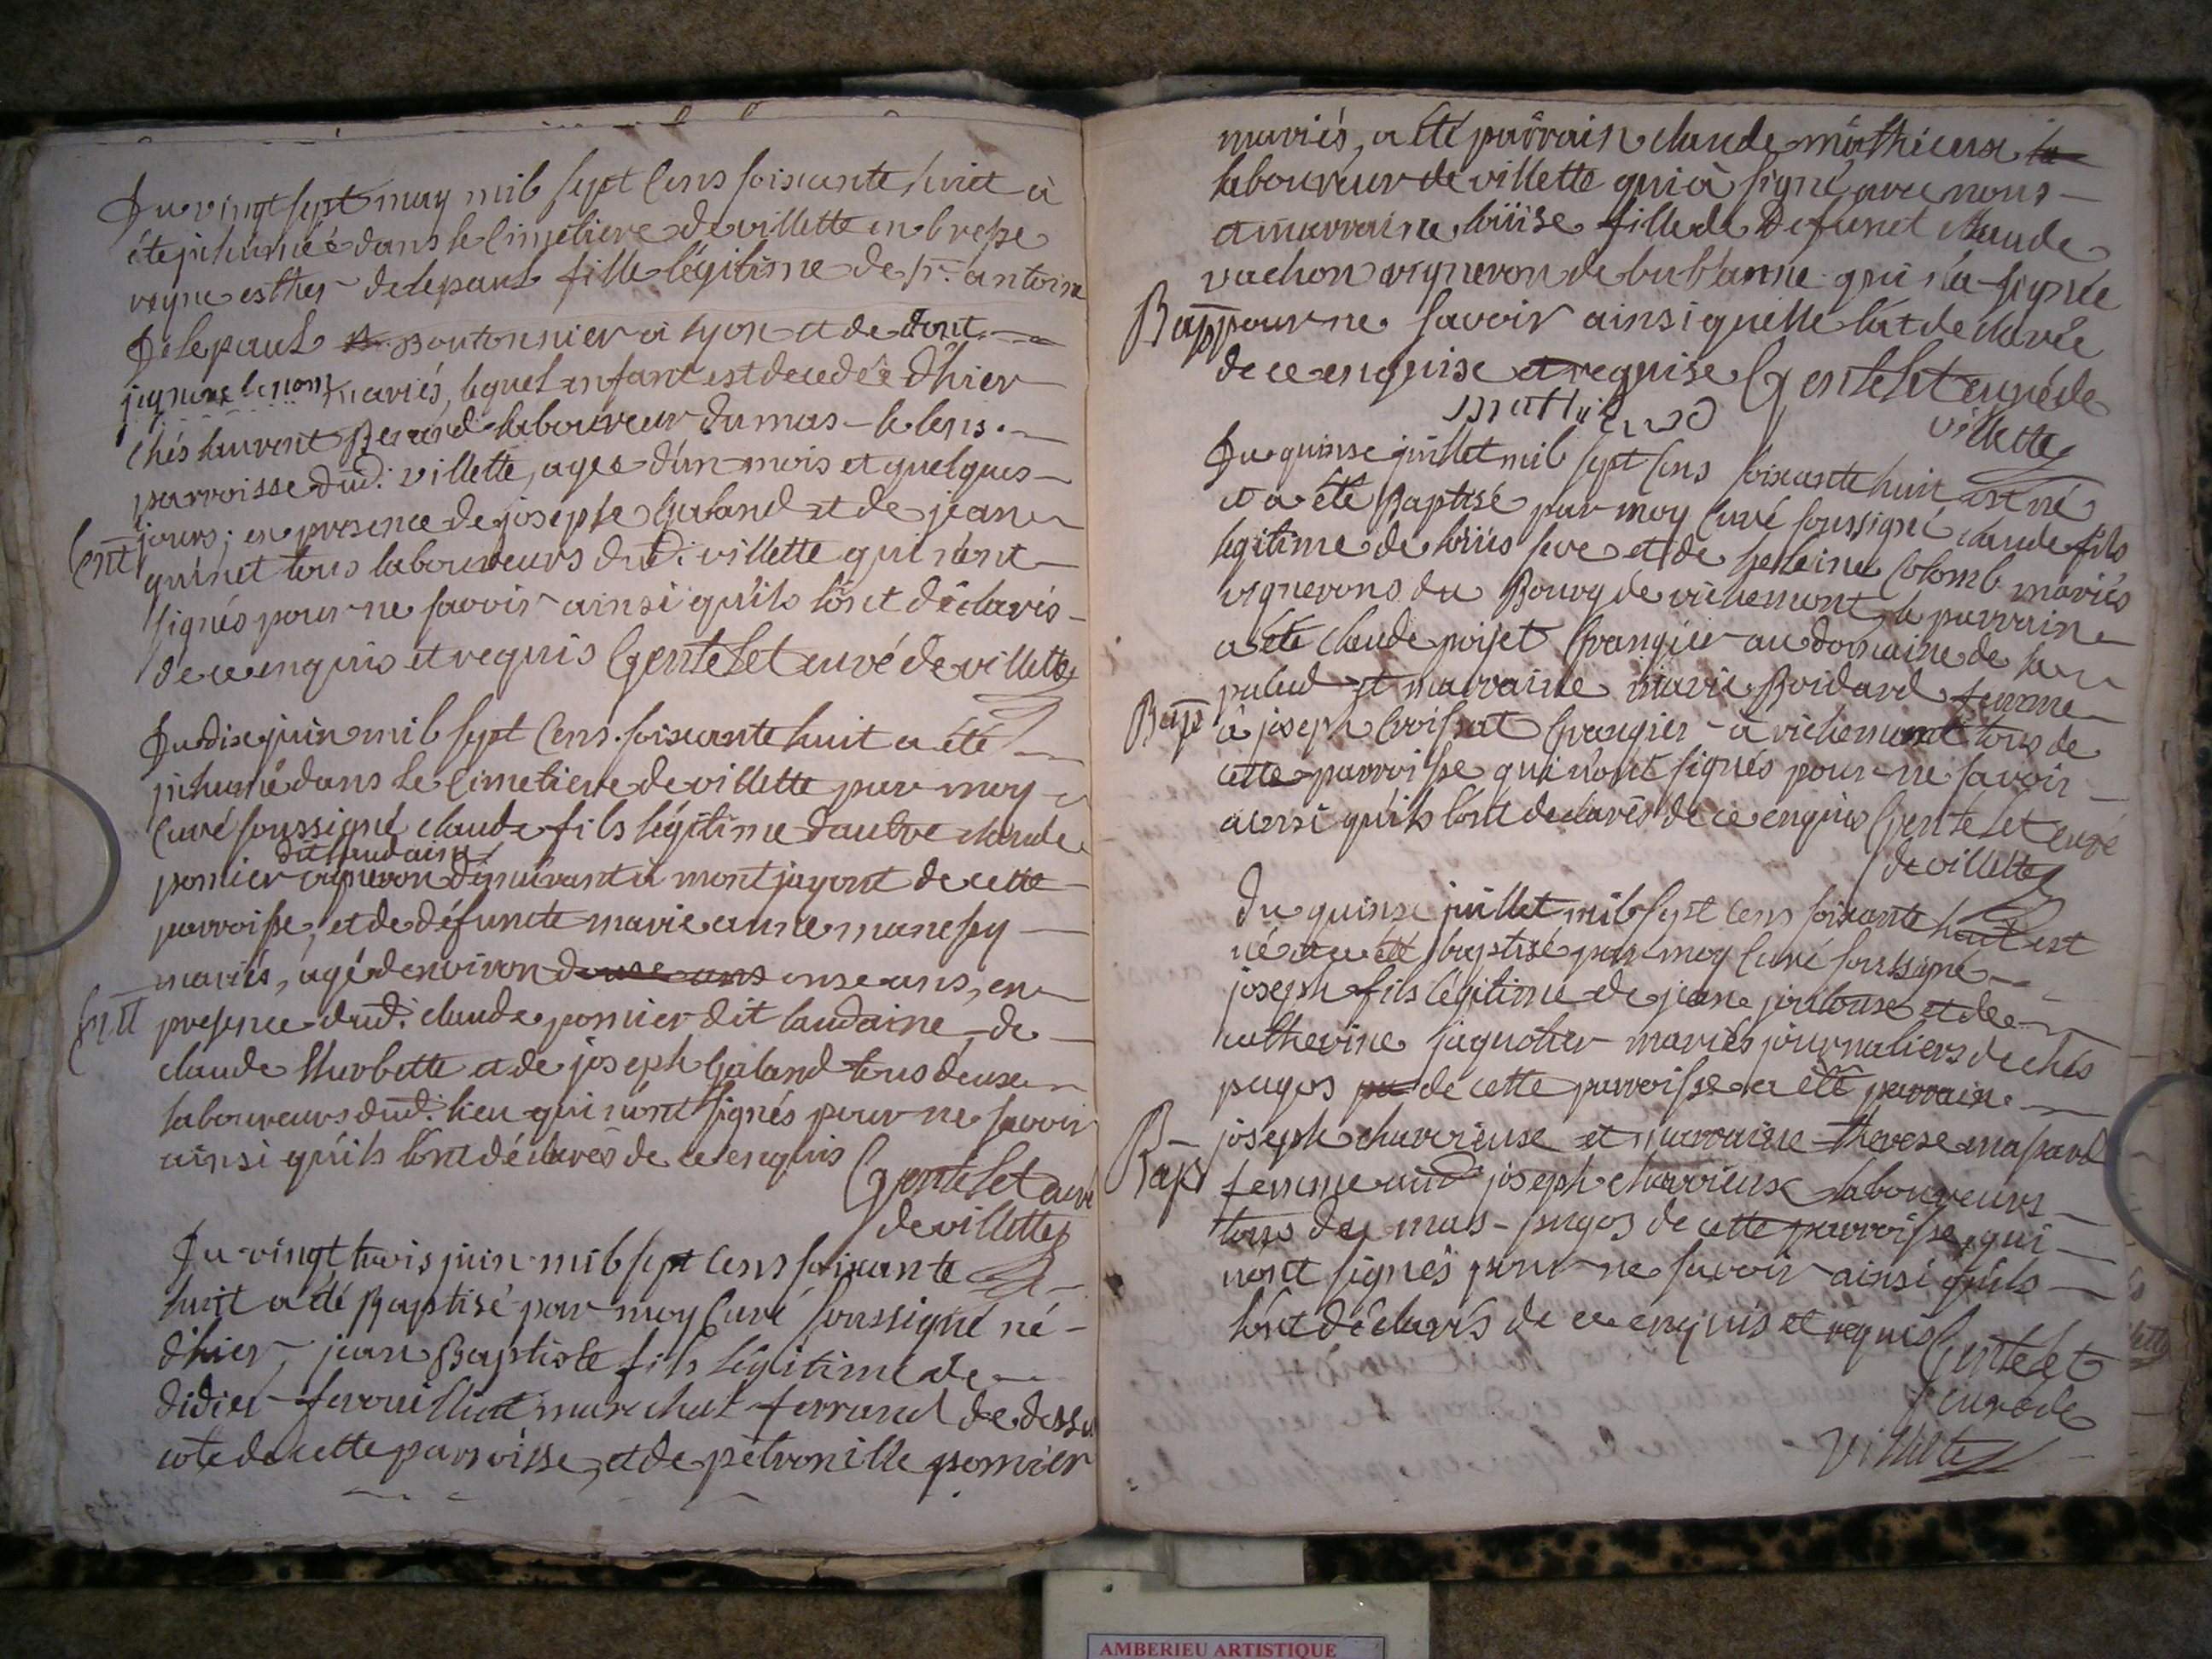 Du vingt sept may mil sept cens soixante huit à
été inhumée dans le cimetiere de villette en bresse
reyne esther delepaul fille légitime de sr. antoine
Delepaul boutonnier à lyon et de dont
j'ignore le nom mariés, lequel enfant est decedée d'hier
chés laurent Berard laboureur du mas le lens
parroisse dud. villette, agée d'un mois et quelques
jours; en presence de joseph Galand et de jean
Ent
quinet tous laboureurs dud. villette qui n'ont
signés pour ne savoir ainsi qu'ils l'ont déclarés
de ce enquis et requis Gentelet curé de villette
Du dix juin mil sept cens soixante huit a été
inhumé dans le cimetiere de villette par moy
curé soussigné claude fils légitime d'autre claude
dit laudaine
pomier vigneron demeurant à montjayont de cette
parroisse, et de défuncte marie anne manessy
mariés, agé d'environ douse ans onse ans, en
Ent
presence dud. claude pomier dit laudaine, de
claude hurbette et de joseph Galand tous deux
laboureurs dud. lieu qui n'ont signés pour ne savoir
ainsi qu'ils l'ont déclarés de ce enquis
Gentelet curé
de villette
Du vingt trois juin mil sept cens soixante
huit a été Baptisé par moy curé soussigné né
d'hier, jean Baptiste fils légitime de
didier ferouillat marechal ferrand de dessu
cote de cette parroisse, et de pétronille pomier
mariés, a été parrain claude mathieux la
laboureur de villette qui à signé avec nous
et marraine loüise fille de Defunct claude
vachon vigneron de bublanne qui n'a signée
Bap
pour ne savoir ainsi quelle l'at declarée
de ce enquise et requise Gentelet curé de
mathieux
villette
Du quinse juillet mil sept cens soixante huit est né
et a été Baptisé par moy curé soussigné claude fils
legitime de loüis seve et de heleine Colomb mariés
vignerons du Bourg de richemont, le parrain
a été claude poijet Grangier au domaine de la
palud et marraine marie Boidard femme
Bap
à joseph Croissat Grangier à richemont tous de
cette parroisse qui n'ont signés pour ne savoir
ainsi qu'ils l'ont declarés de ce enquis Gentelet curé
de villette
Du quinse juillet mil sept cens soixante huit est
né et a été baptisé par moy curé soussigné
joseph fils légitime de jean joulouse et de
catherine jaquotier mariés journaliers de chés
pugos pa de cette parroisse a été parrain
joseph charrieuse et marraine therese massard
Bap
femme aud. joseph charrieuse laboureurs
tous du mas pugos de cette parroisse, qui
n'ont signés pour ne savoir ainsi qu'ils
l'ont déclarés de ce enquis et requis Gentelet
curé de
villette
AMBERIEU ARTISTIQUE